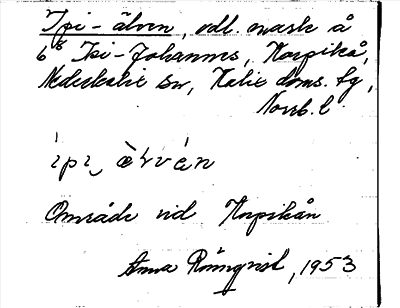 Ipi-älven, odl. mark å
6⁸ Ipi-Johannes, Korpikå,
Nederkalix sn, Kalix doms. fg,
Norrb. l.
ìpi älvèn
Område vid Korpikån
Anna Rönnqvist, 1953